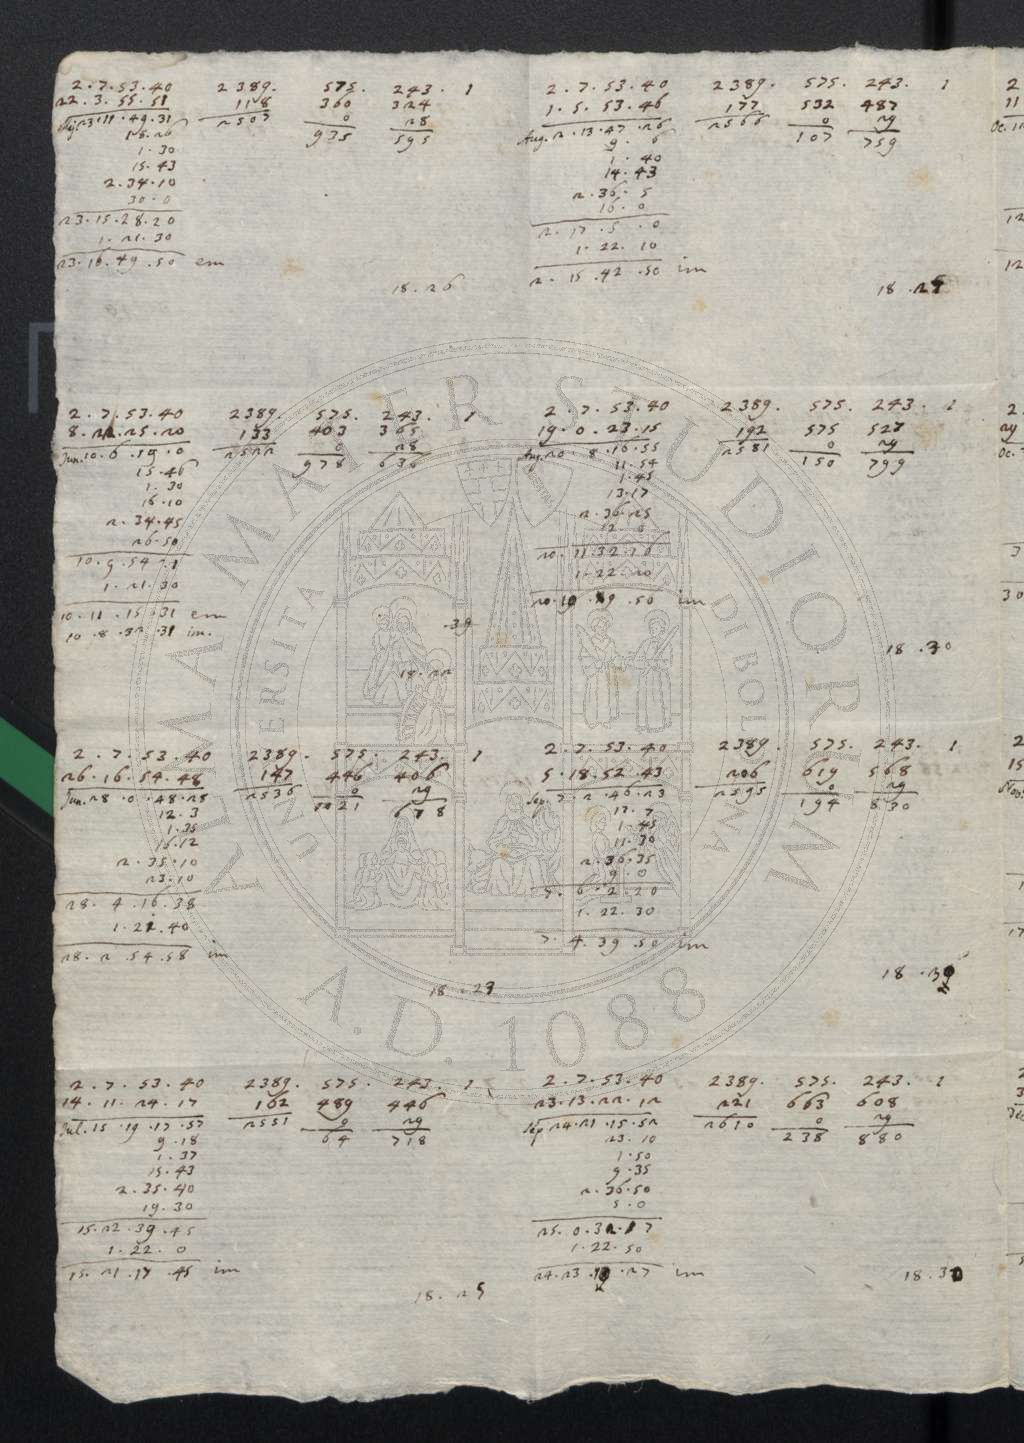 2 . 7 . 53 . 40 2389. 575. 243. 1
22 . 3 . 55 . 51 118 360 324
23 . 11 . 49 . 31 2507 0 28
18 . 26 935 595
1 . 30
15 . 43
2 . 34 . 10
30 . 0
23 . 15 . 28 . 20
1 . 21 . 30
23 . 16 . 49 . 50 em
18 . 26
2 . 7 . 53 . 40 2389. 575. 243. 1
1 . 5 . 53 . 46 177 532 487
Aug. 2 . 13 . 47 . 26 2566 0 29
9 . 6 107 759
1 . 40
14 . 43
2 . 36 . 5
16 . 0
2 . 17 . 5 . 0
1 . 22 . 10
2 . 15 . 42 . 50 im
18 . 25
2 . 7 . 53 . 40 2389. 575. 243. 1
8 . 22 . 25 . 20 133 403 365
Jun. 10 . 6 . 19 . 0 2522 0 28
15 . 46 978 636
1 . 30
16 . 10
2 . 34 . 45
26 . 50
10 . 9 . 54 . 1
1 . 21 . 30
10 . 11 . 15 . 31 em
10 . 8 . 32 . 31 im.
39
18 . 22
2 . 7 . 53 . 40 2389. 575. 243. 1
19 . 0 . 23 . 15 192 575 527
Aug. 20 . 8 . 16 . 55 2581 0 29
11 . 54 150 799
1 . 45
13 . 17
2 . 36 . 25
12 . 0
20 . 11 . 32 . 16
1 . 22 . 20
20 . 10 . 9 . 50 im
18 . 30
2 . 7 . 53 . 40 2389. 575. 243. 1
26 . 16 . 54 . 48 147 446 406
Jun. 28 . 0 . 48 . 28 2536 0 29
12 . 3 1021 678
1 . 35
16 . 12
2 . 35 . 10
23 . 10
28 . 4 . 16 . 38
1 . 21 . 40
28 . 2 . 54 . 58 im
18 . 29
2 . 7 . 53 . 40 2389. 575. 243. 1
5 . 18 . 52 . 43 206 619 568
Sep. 7 . 2 . 46 . 23 2595 0 29
17 . 7 194 830
1 . 45
11 . 30
2 . 36 . 35
9 . 0
7 . 6 . 2 . 20
1 . 22 . 30
7 . 4 . 39 . 50 im
18 . 39
2 . 7 . 53 . 40 2389. 575. 243. 1
14 . 11 . 24 . 17 162 489 446
Jul. 15 . 19 . 17 . 57 2551 0 29
9 . 18 64 718
1 . 37
15 . 43
2 . 35 . 40
19 . 30
15 . 22 . 39 . 45
1 . 22 . 0
15 . 21 . 17 . 45 im
18 . 25
2 . 7 . 53 . 40 2389. 575. 243. 1
23 . 13 . 22 . 12 221 663 608
Sep 24 . 21 . 15 . 52 2610 0 29
23 . 10 238 880
1 . 50
9 . 35
2 . 36 . 50
5 . 0
25 . 0 . 32 . 17
1 . 22 . 50
24 . 23 . 9 . 27 im
18 . 30
ALMA MATER STUDIORUM
A.D. 1088
UNIVERSITA DI BOLOGNA